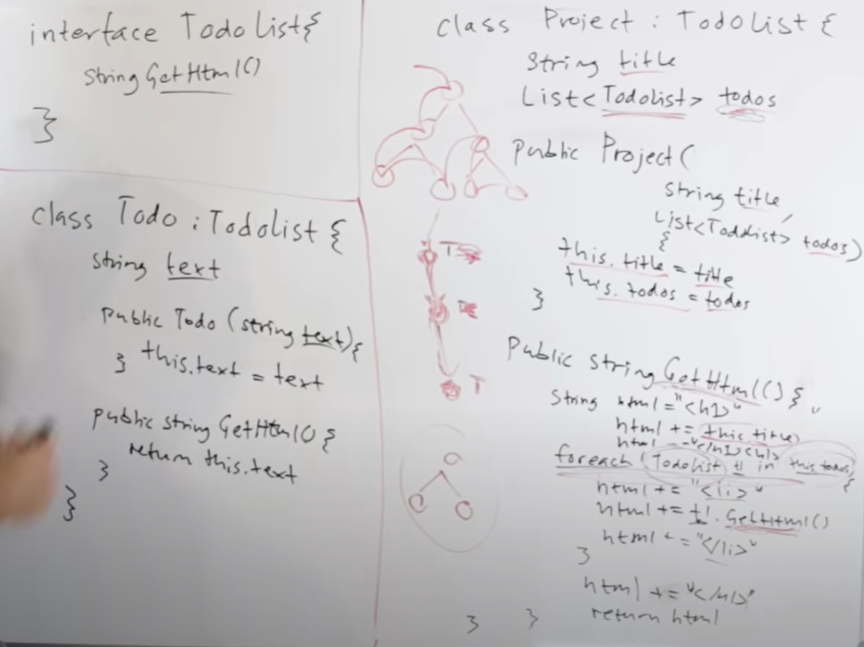 interface TodoList{
String GetHtml()
}
class Todo : Todolist {
string text
public Todo (string text){
this.text = text
}
public string GetHtml() {
return this.text
}
}
class Project : TodoList {
String title
List<Todolist> todos
public Project(
string title,
List<Todolist> todos)
{
this.title = title
this.todos = todos
}
T
T
public string GetHtml() {
String html = "<h1>"
html += this.title
html
foreach (Todolist tl in this.todos)
{
html += "<li>"
html += tl.GetHtml()
html += "</li>"
}
html += "</ul>"
return html
}
}